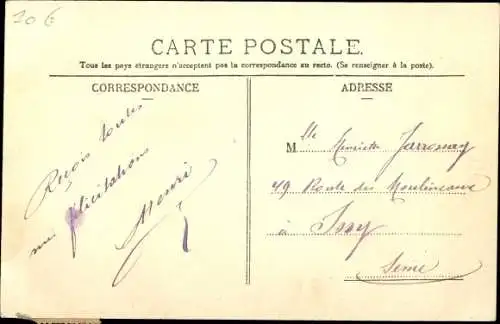 20 €
CARTE POSTALE.
Tous les pays étrangers n'acceptent pas la correspondance au recto. (Se renseigner à la poste).
CORRESPONDANCE
Reçois toutes
mes félicitations
Henri
ADRESSE
Mlle Henriette
49 Route des Moulineaux
à Issy
Seine